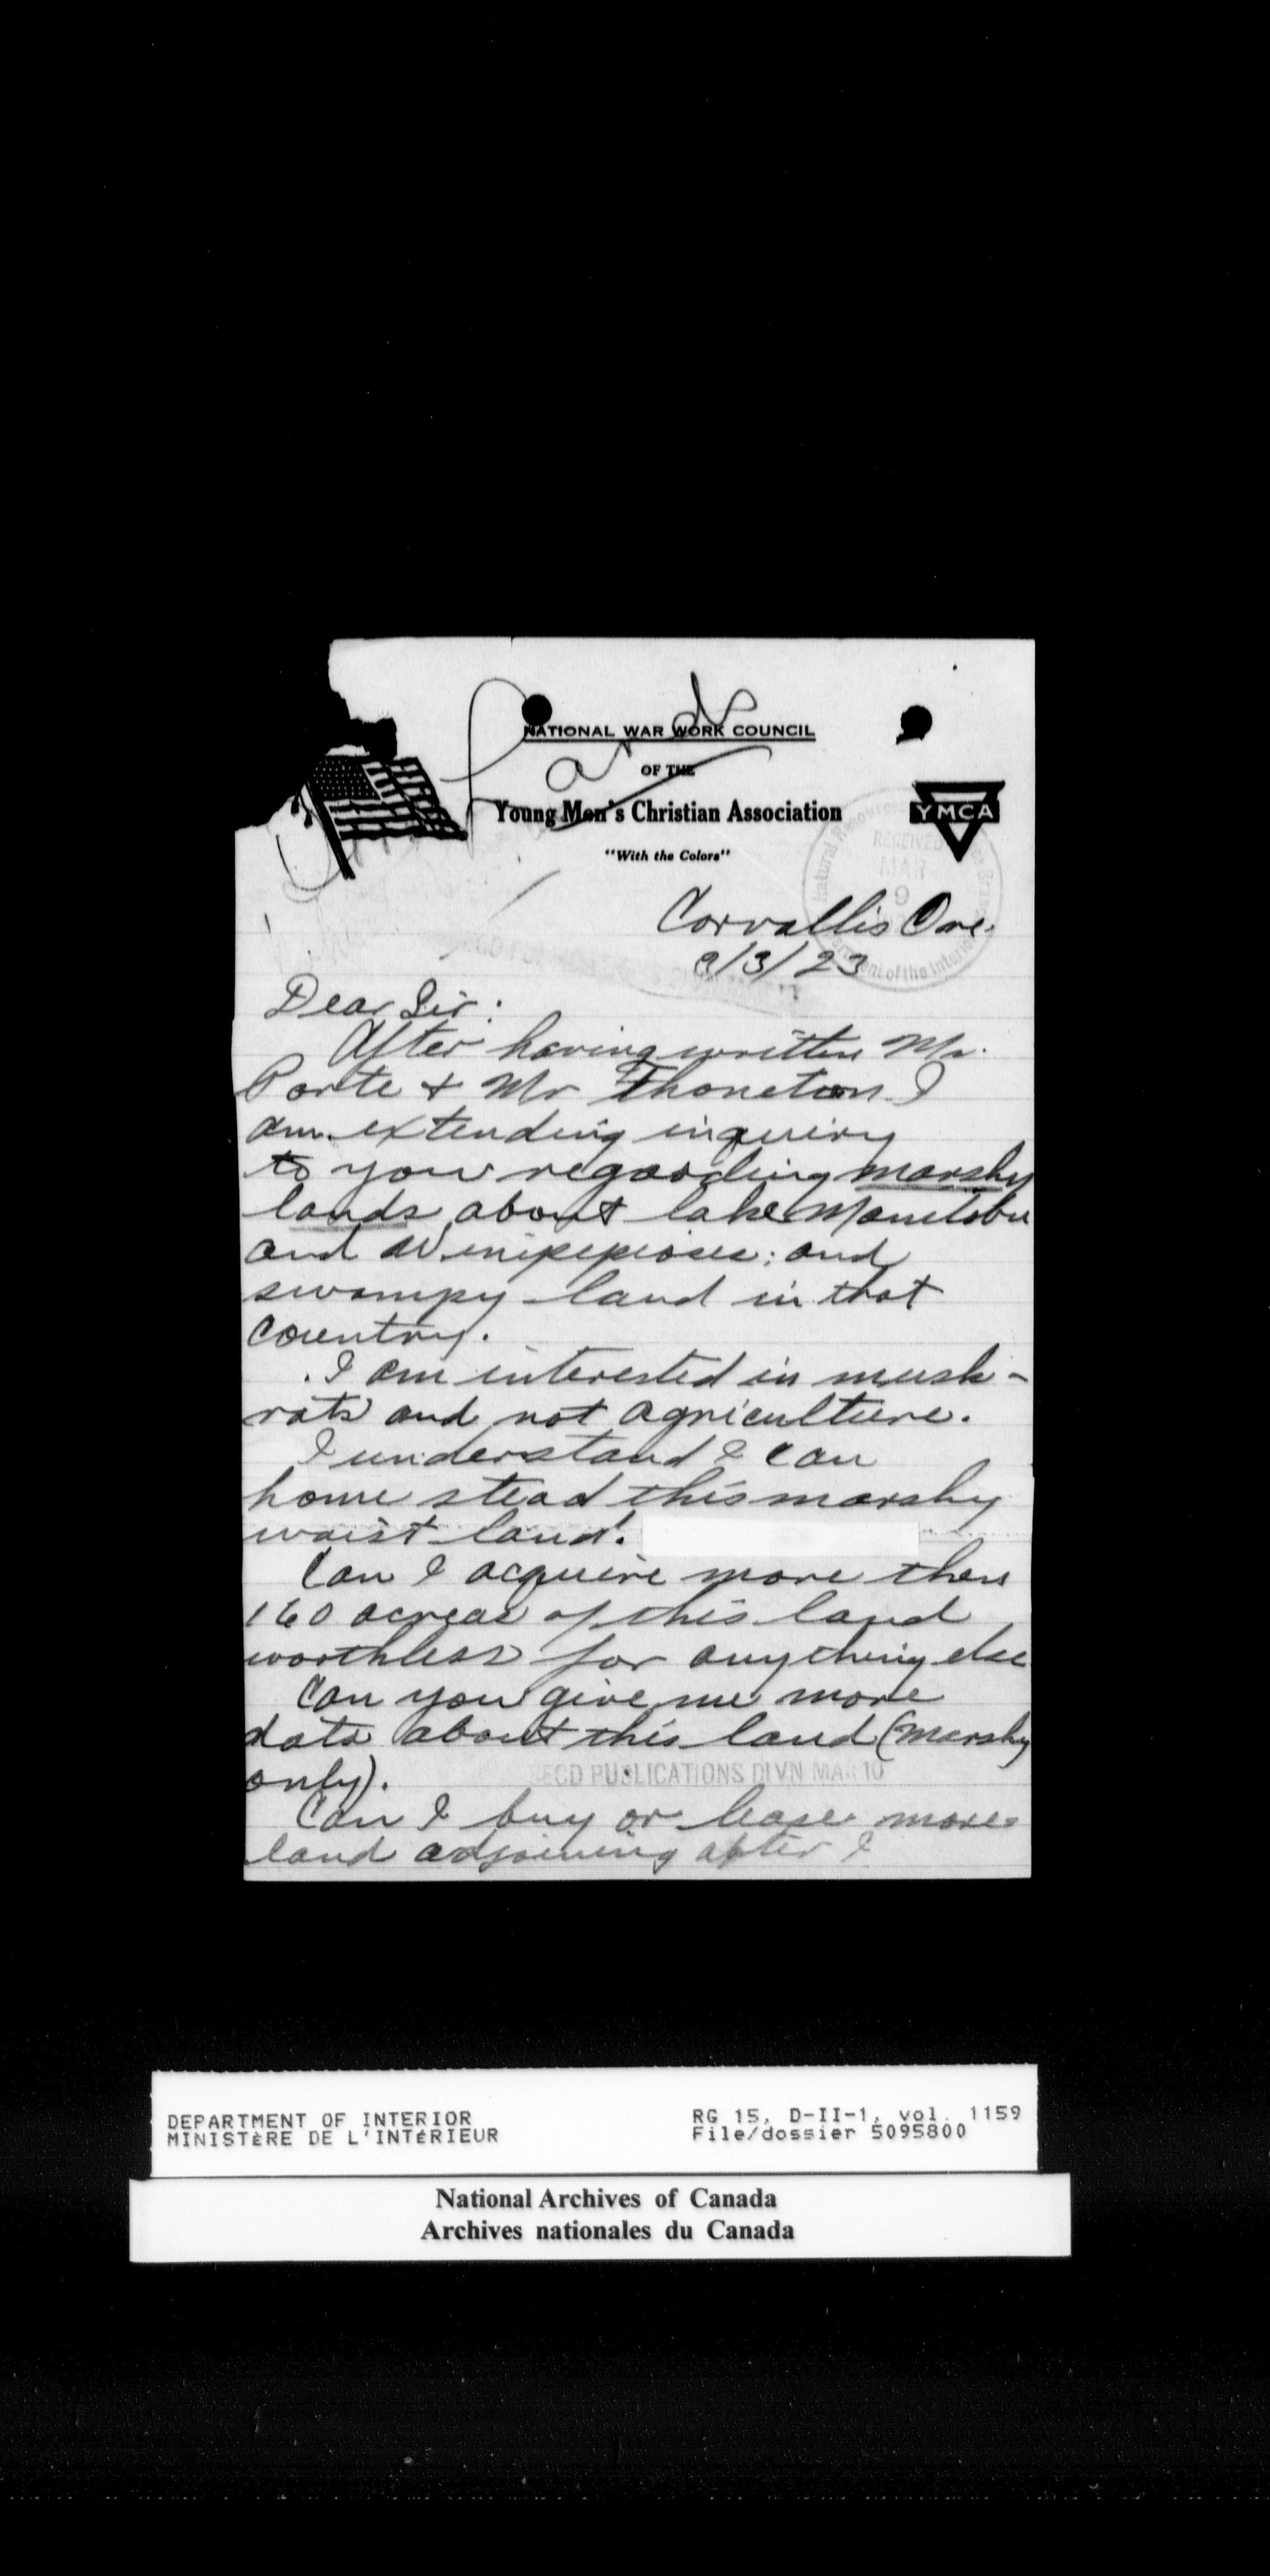 Land
NATIONAL WAR WORK COUNCIL
OF THE
Young Men's Christian Association
"With the Colors"
YMCA
Natural Resources
RECEIVED
MAR
9
of the Interior
Corvallis Ore.
/3/23
Dear Sir:
After having written Mr.
& Mr I
am extending inquiry
to you regarding marshy
lands about lake Manitoba
and
swampy land in that
country.
I am interested in musk-
rats and not agriculture.
I understand I can
home stead this marshy
waist land.
Can I acquire more then
160 acreas of this land
worthless for anything else
Can you give me more
data about this land (marshy
only).
REC'D PUBLICATIONS DIVN MAR 10
Can I buy or lease more
land adjoining after I
DEPARTMENT OF INTERIOR
MINISTÈRE DE L'INTÉRIEUR
RG 15, D-II-1, vol. 1159
File/dossier 5095800
National Archives of Canada
Archives nationales du Canada